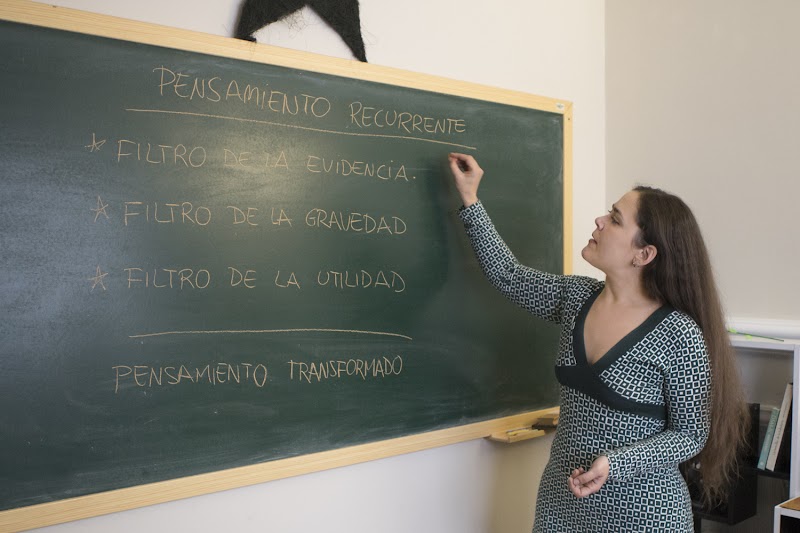 PENSAMIENTO RECURRENTE
* FILTRO DE LA EVIDENCIA.
* FILTRO DE LA GRAVEDAD
* FILTRO DE LA UTILIDAD
PENSAMIENTO TRANSFORMADO